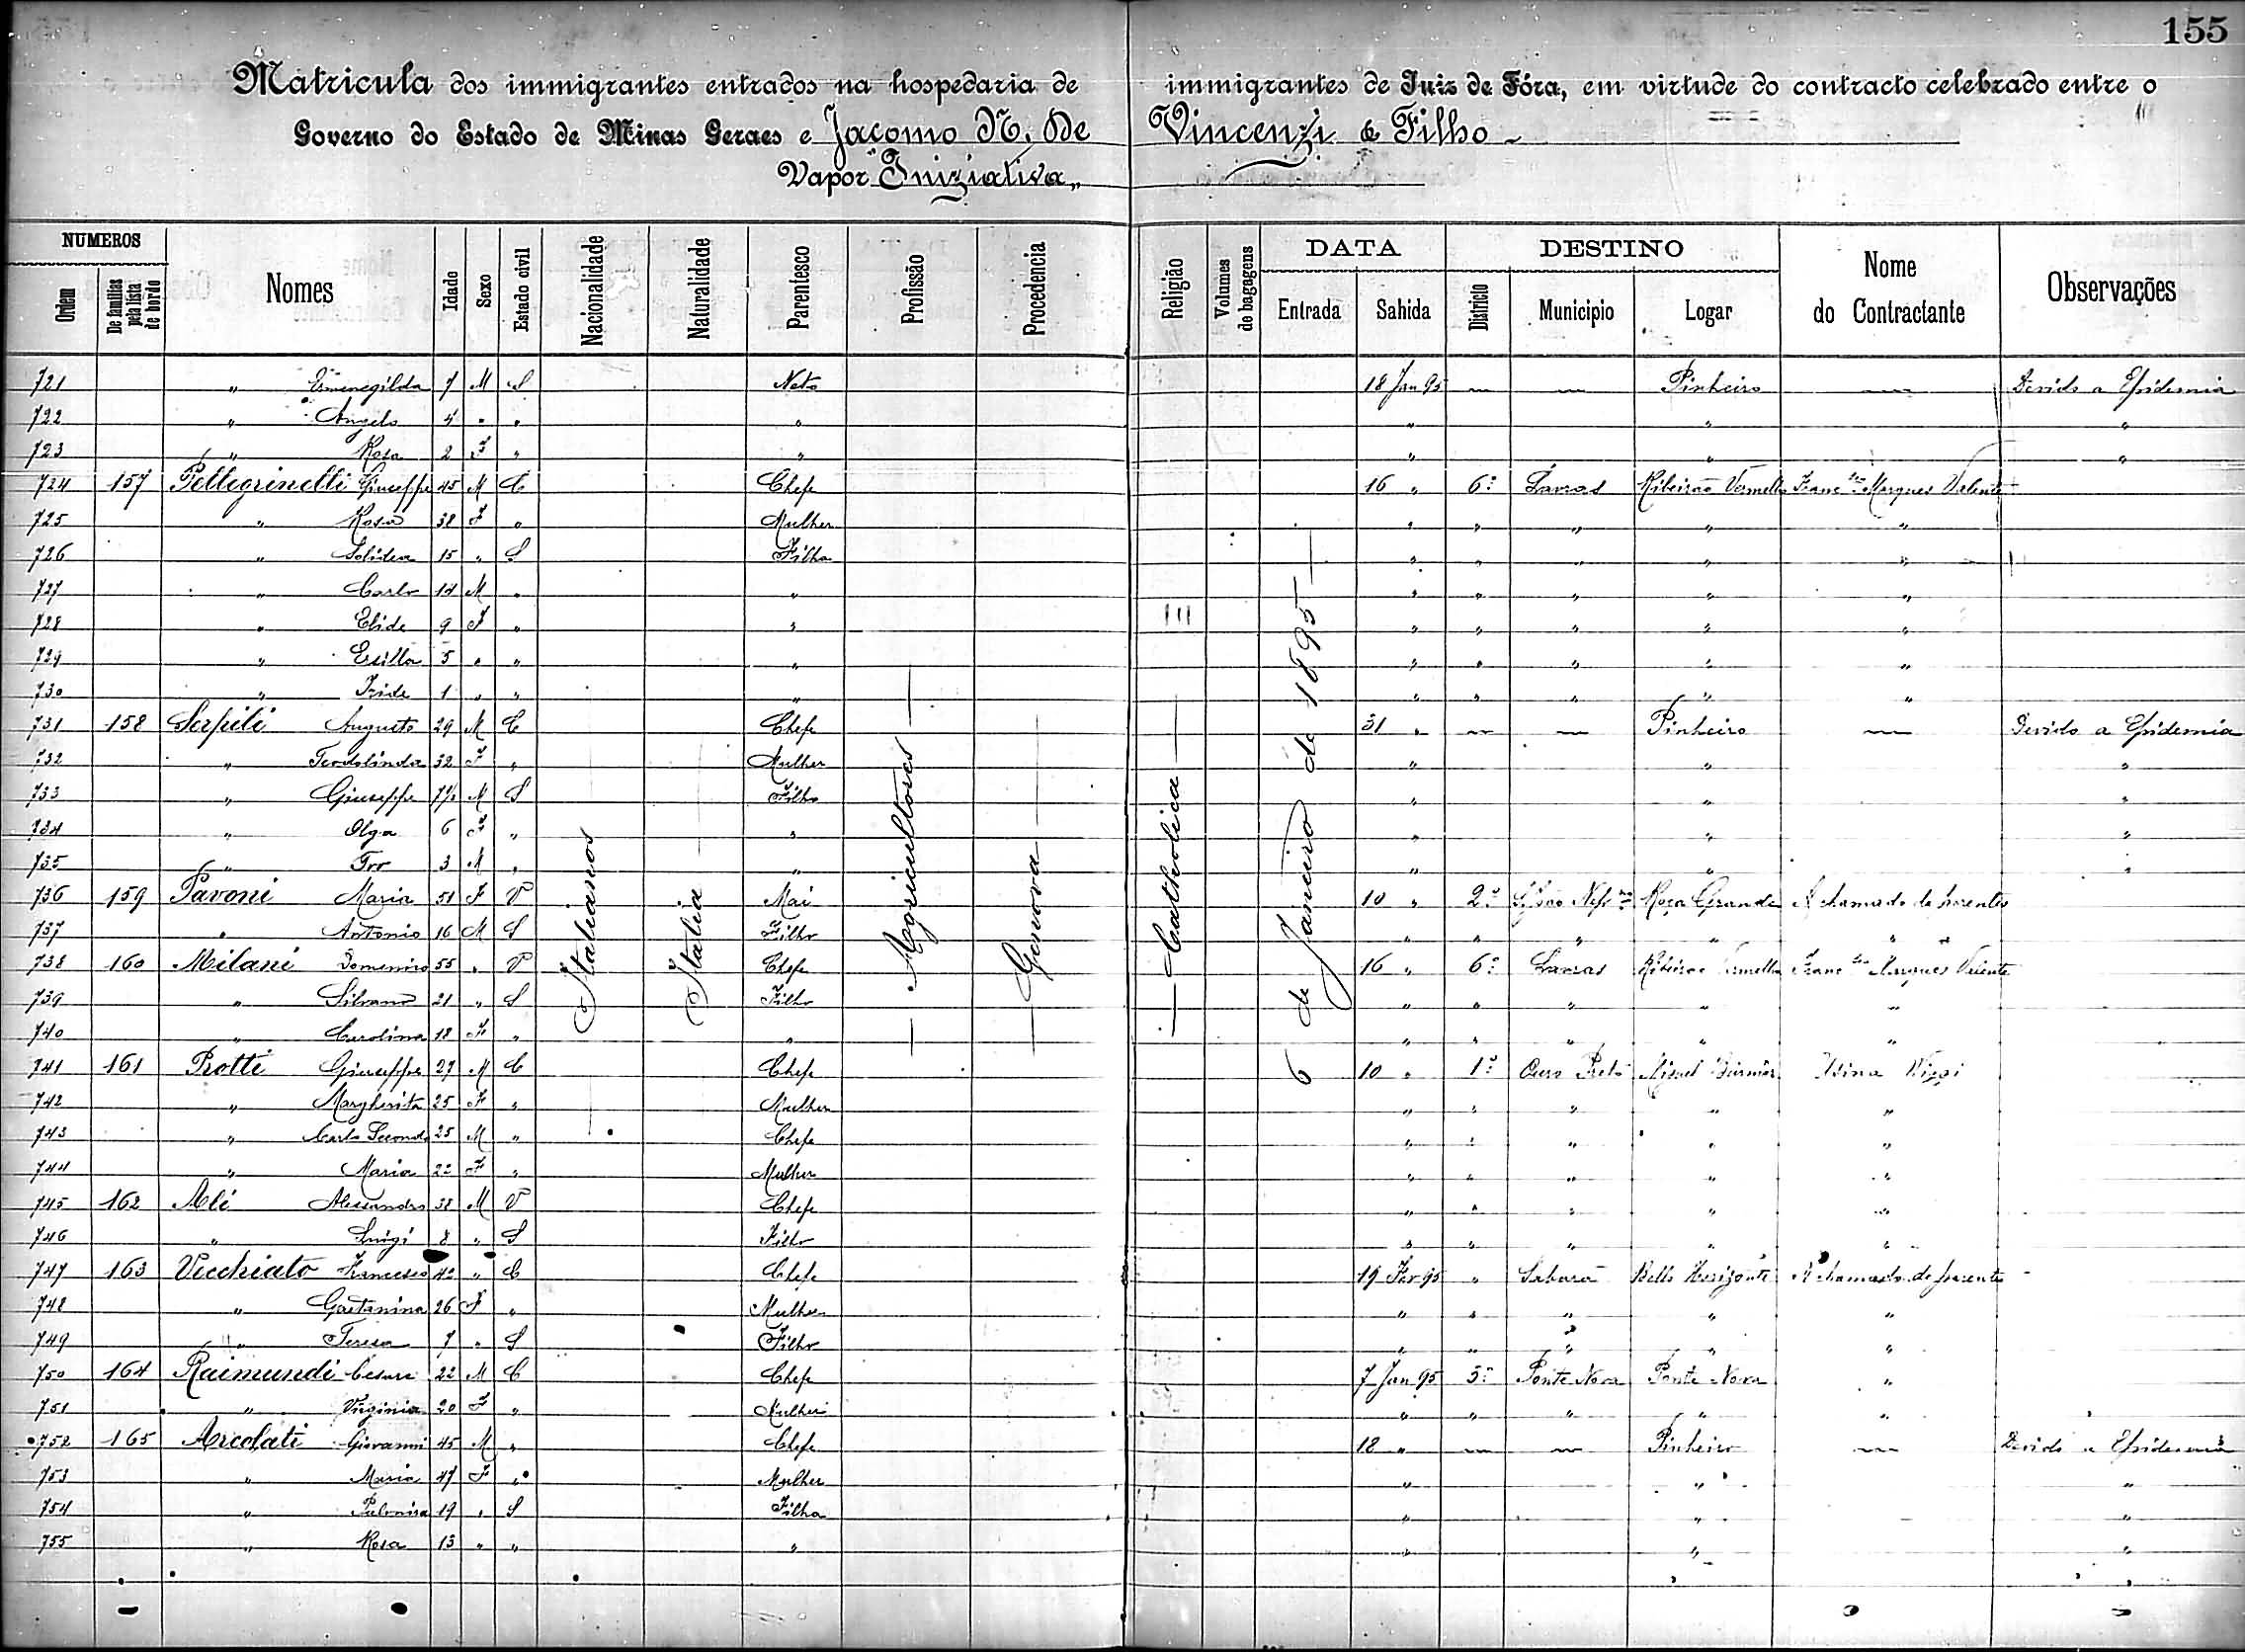 155
Matricula dos immigrantes entrados na hospedaria de immigrantes de Juiz de Fóra, em virtude do contracto celebrado entre o
Governo do Estado de Minas Geraes e Jacomo N. De Vincenzi & Filho
Vapor "Iniziativa"
NUMEROS DATA DESTINO
Ordem De familias pela lista de bordo Nomes Idade Sexo Estado civil Nacionalidade Naturalidade Parentesco Profissão Procedencia Religião Volumes de bagagens Entrada Sahida Districto Municipio Logar Nome do Contractante Observações
Italianos
Italia
Agricultores
Genova
Catholica
6 de Janeiro de 1895
721 " Ermenegilda 7 M S Neto 18 Jan 95 — — Pinheiro — Devido a Epidemia
722 " Angelo 4 " " " " " "
723 " Rosa 2 F " " " " "
724 157 Pellegrinelli Giuseppe 45 M C Chefe 16 " 6º Lavras Ribeirão Vermelho Franc.co Marques Valente
725 " Rosa 38 F " Mulher " " " " "
726 " Solidea 15 " S Filha " " " " "
727 " Carlo 14 M " " " " " " "
728 " Elide 9 F " " " " " " "
729 " Ersilla 5 " " " " " " " "
730 " Iride 1 " " " " " " "
731 158 Serpili Augusto 29 M C Chefe 31 " — — Pinheiro — Devido a Epidemia
732 " Teodolinda 32 F " Mulher " " "
733 " Giuseppe M S Filho " " "
734 " Olga 6 F " " " " "
735 " 3 M " " " " "
736 159 Pavoni Maria 51 F V Mai 10 " 2º Roça Grande A chamado de parentes
737 " Antonio 16 M S Filho " " " " "
738 160 Milani Domenico 55 " V Chefe 16 " 6º Lavras Ribeirão Vermelho Franc.co Marques
739 " Silvano 21 " S Filho " " " " "
740 " Carolina 18 F " " " " " " "
741 161 Protti Giuseppe 27 M C Chefe 10 " 1º Ouro Preto Miguel Burnier Usina Wigg
742 " Margherita 25 F " Mulher " " " " "
743 " Carlo Secondo 25 M " Chefe " " " " "
744 " Maria 22 F " Mulher " " " " "
745 162 Alé Alessandro 38 M V Chefe " " " " "
746 " Luigi 8 " S Filho " " " " "
747 163 Vecchiato Francesco 42 " C Chefe 19 Fev 95 " Sabará Bello Horizonte A chamado de parentes
748 " Gaetanina 26 F " Mulher " " " " "
749 " Teresa 7 " S Filho " " " " "
750 164 Raimundi Cesare 22 M C Chefe 7 Jan 95 5º Ponte Nova Ponte Nova "
751 " Virginia 20 F " Mulher " " " " "
752 165 Arcolati Giovanni 45 M " Chefe 18 " — — Pinheiro — Devido a Epidemia
753 " Maria 47 F " Mulher " " "
754 " 19 " S Filha " " "
755 " Rosa 13 " " " " " "